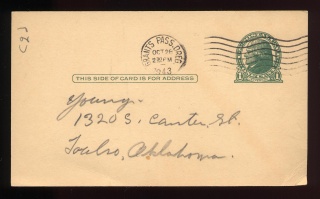 C2J
GRANTS PASS, OREG.
OCT 26
2 30 PM
1943
THIS SIDE OF CARD IS FOR ADDRESS
Young.
1320 S. Canter St.
Toulsa, Oklahoma.